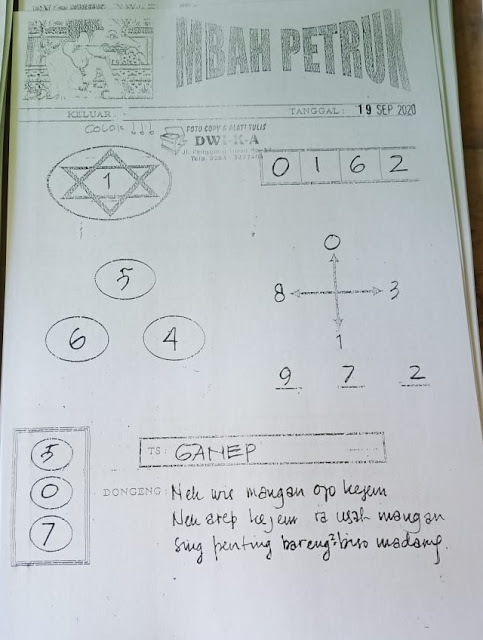 MBAH PETRUK
KELUAR:
TANGGAL: 19 SEP 2020
COLOK !!!
FOTO COPY & ALAT TULIS
DWI-K-A
1
0 1 6 2
5
6 4
0
8 3
1
9 7 2
5
0
7
TS: GANEP
DONGENG: Nek wis mangan ojo kejem
Nek arep kejem ra usah mangan
Sing penting bareng² biso madang.